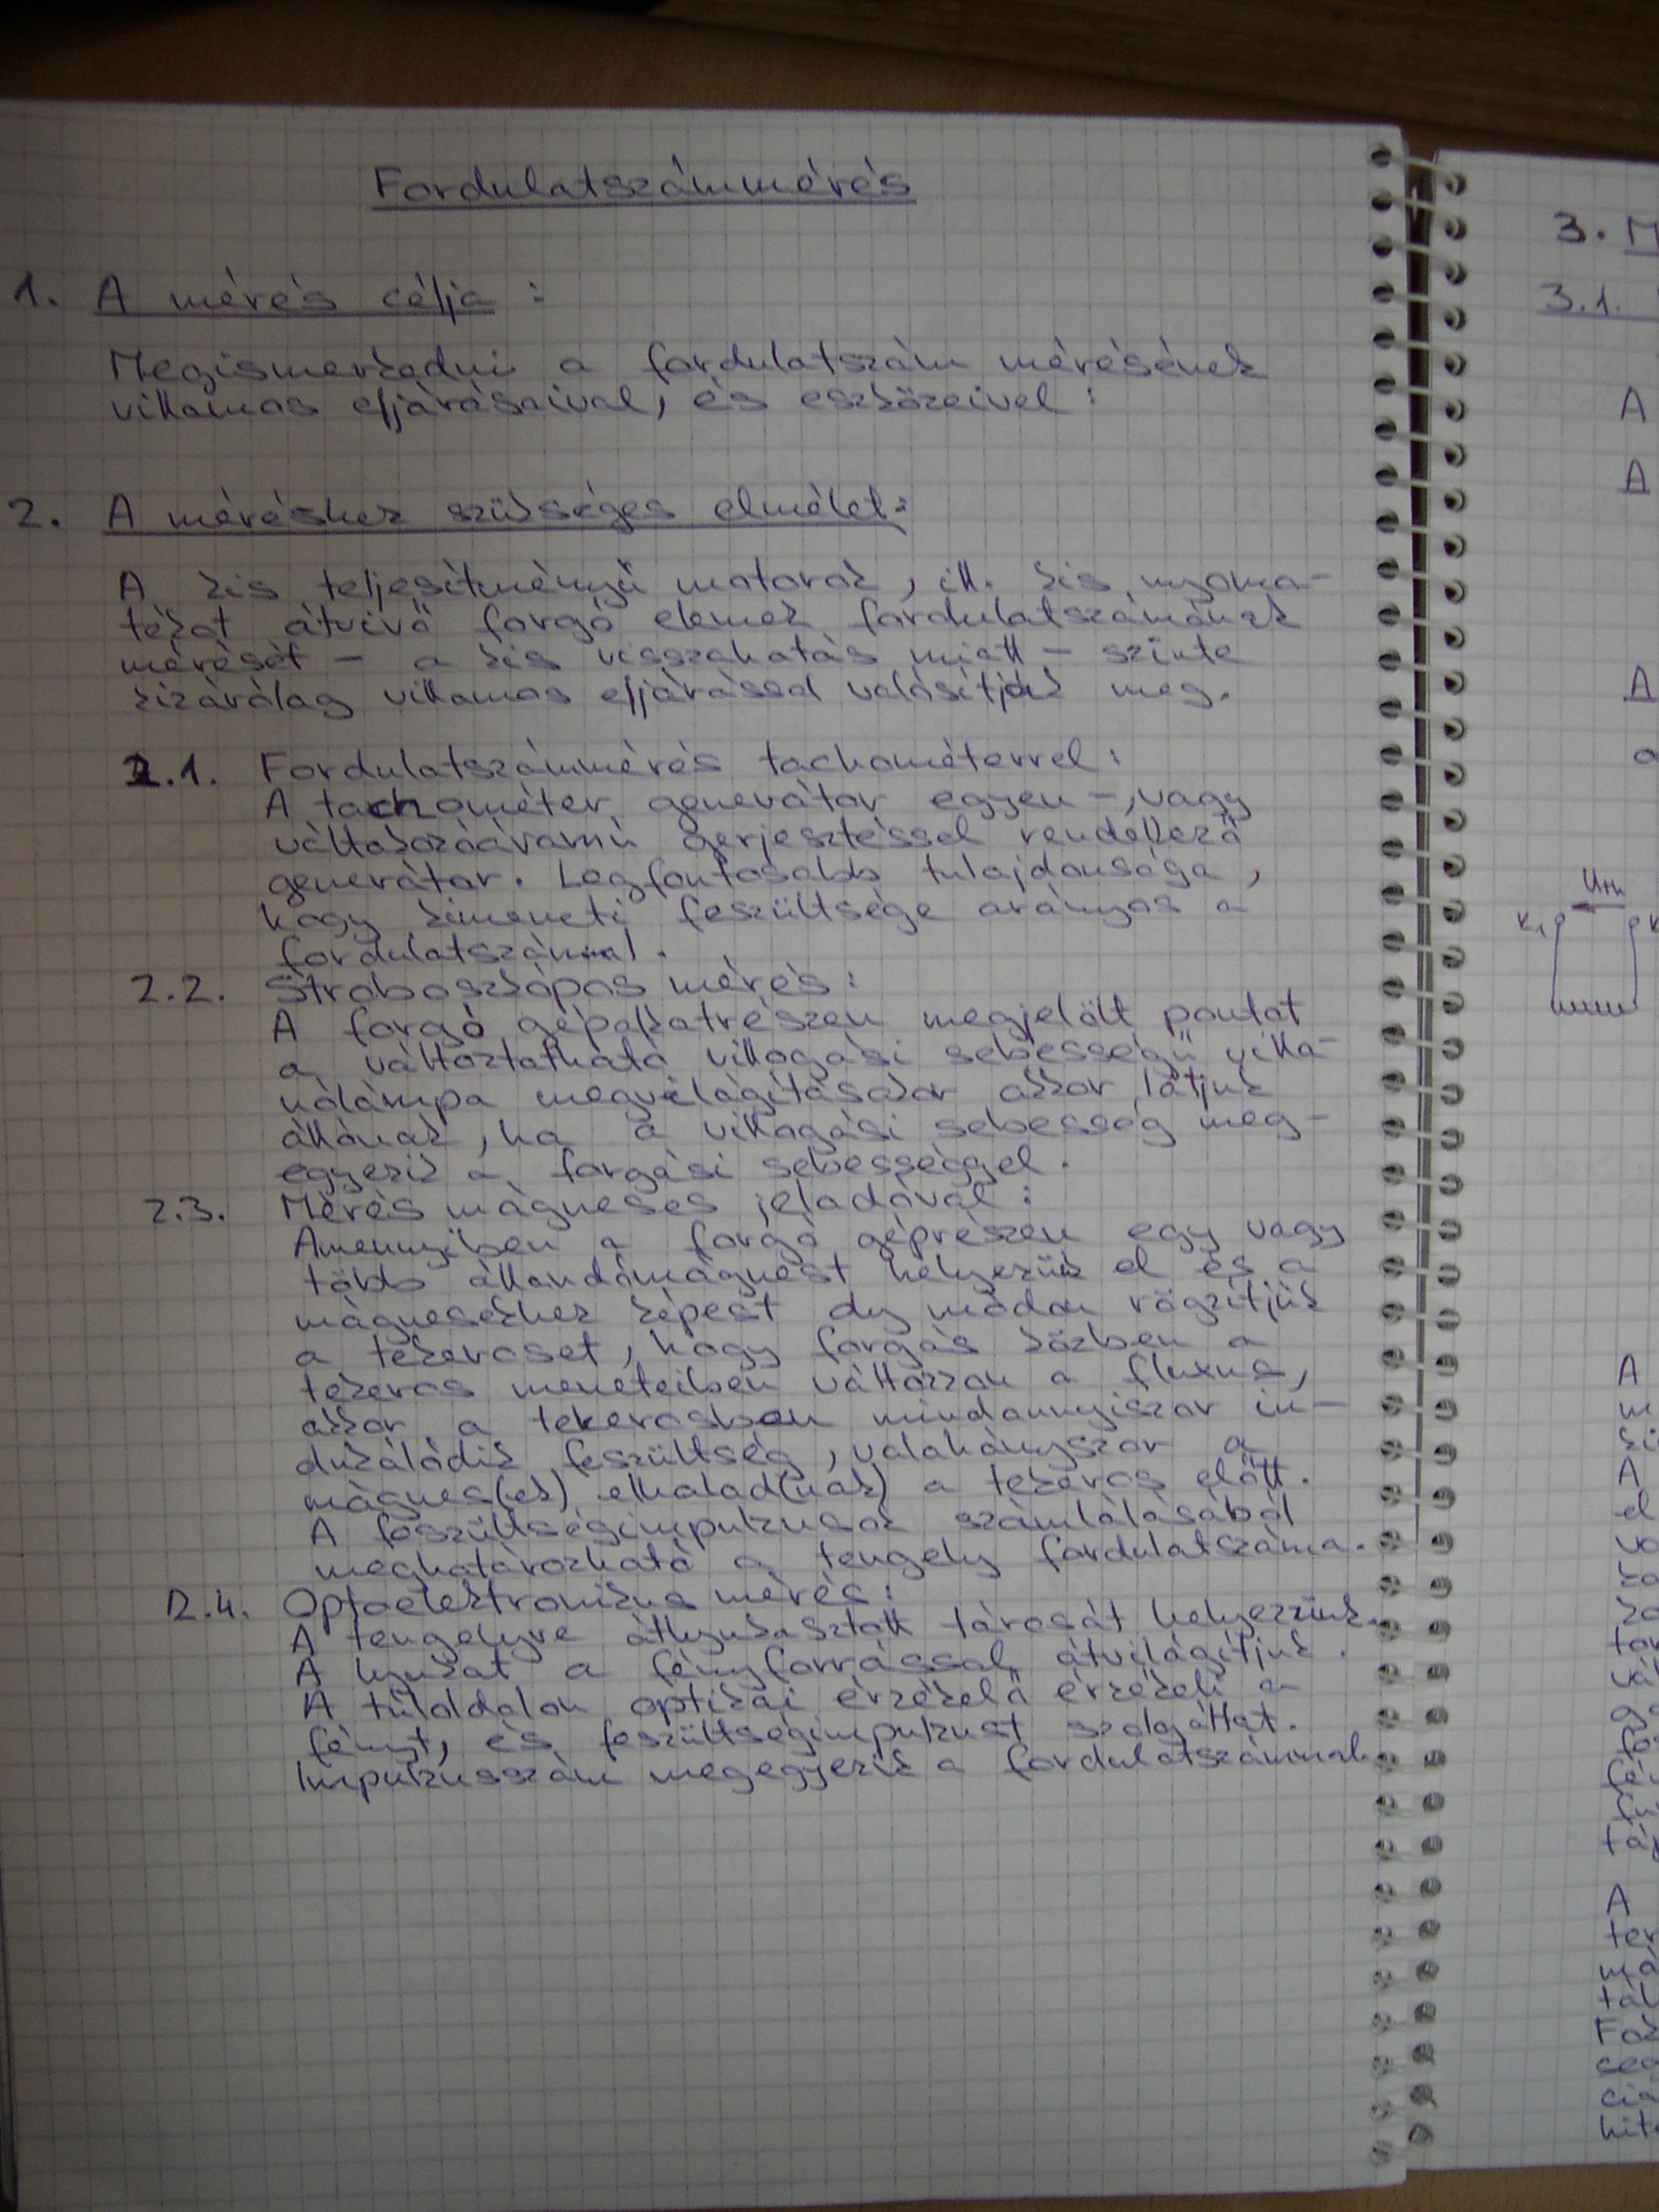 Fordulatszámmérés
1. A mérés célja :
Megismerkedni a fordulatszám mérésének
villamos eljárásaival, és eszközeivel :
2. A méréshez szükséges elmélet:
A kis teljesítményű motorok, ill. kis nyoma-
tékot átvivő forgó elemek fordulatszámának
mérését - a kis visszahatás miatt - szinte
kizárólag villamos eljárással valósítják meg.
2.1. Fordulatszámmérés tachométerrel :
A tachométer generátor egyen -, vagy
váltakozóáramú gerjesztéssel rendelkező
generátor. Legfontosabb tulajdonsága,
hogy kimeneti feszültsége arányos a
fordulatszámmal.
2.2. Stroboszkópos mérés :
A forgó gépalkatrészen megjelölt pontot
a változtatható villogási sebességű villa-
nólámpa megvilágításakor akkor látjuk
állónak, ha a villogási sebesség meg-
egyezik a forgási sebességgel.
2.3. Mérés mágneses jeladóval :
Amennyiben a forgó géprészen egy vagy
több állandómágnest helyezünk el és a
mágnesekhez képest oly módon rögzítjük
a tekercset, hogy forgás közben a
tekercs meneteiben változzon a fluxus,
akkor a tekercsben mindannyiszor in-
dukálódik feszültség, valahányszor a
mágnes(ek) elhalad(nak) a tekercs előtt.
A feszültségimpulzusok számlálásából
meghatározható a tengely fordulatszáma.
2.4. Optoelektronikus mérés :
A tengelyre átlyukasztott tárcsát helyezzünk.
A lyukat a fényforrással átvilágítjuk.
A túloldalon optikai érzékelő érzékeli a
fényt, és feszültségimpulzust szolgáltat.
Impulzusszám megegyezik a fordulatszámmal.
3. M
3.1.
A
A
A
a
K1
A
m
ki
A
el
A
ter
má